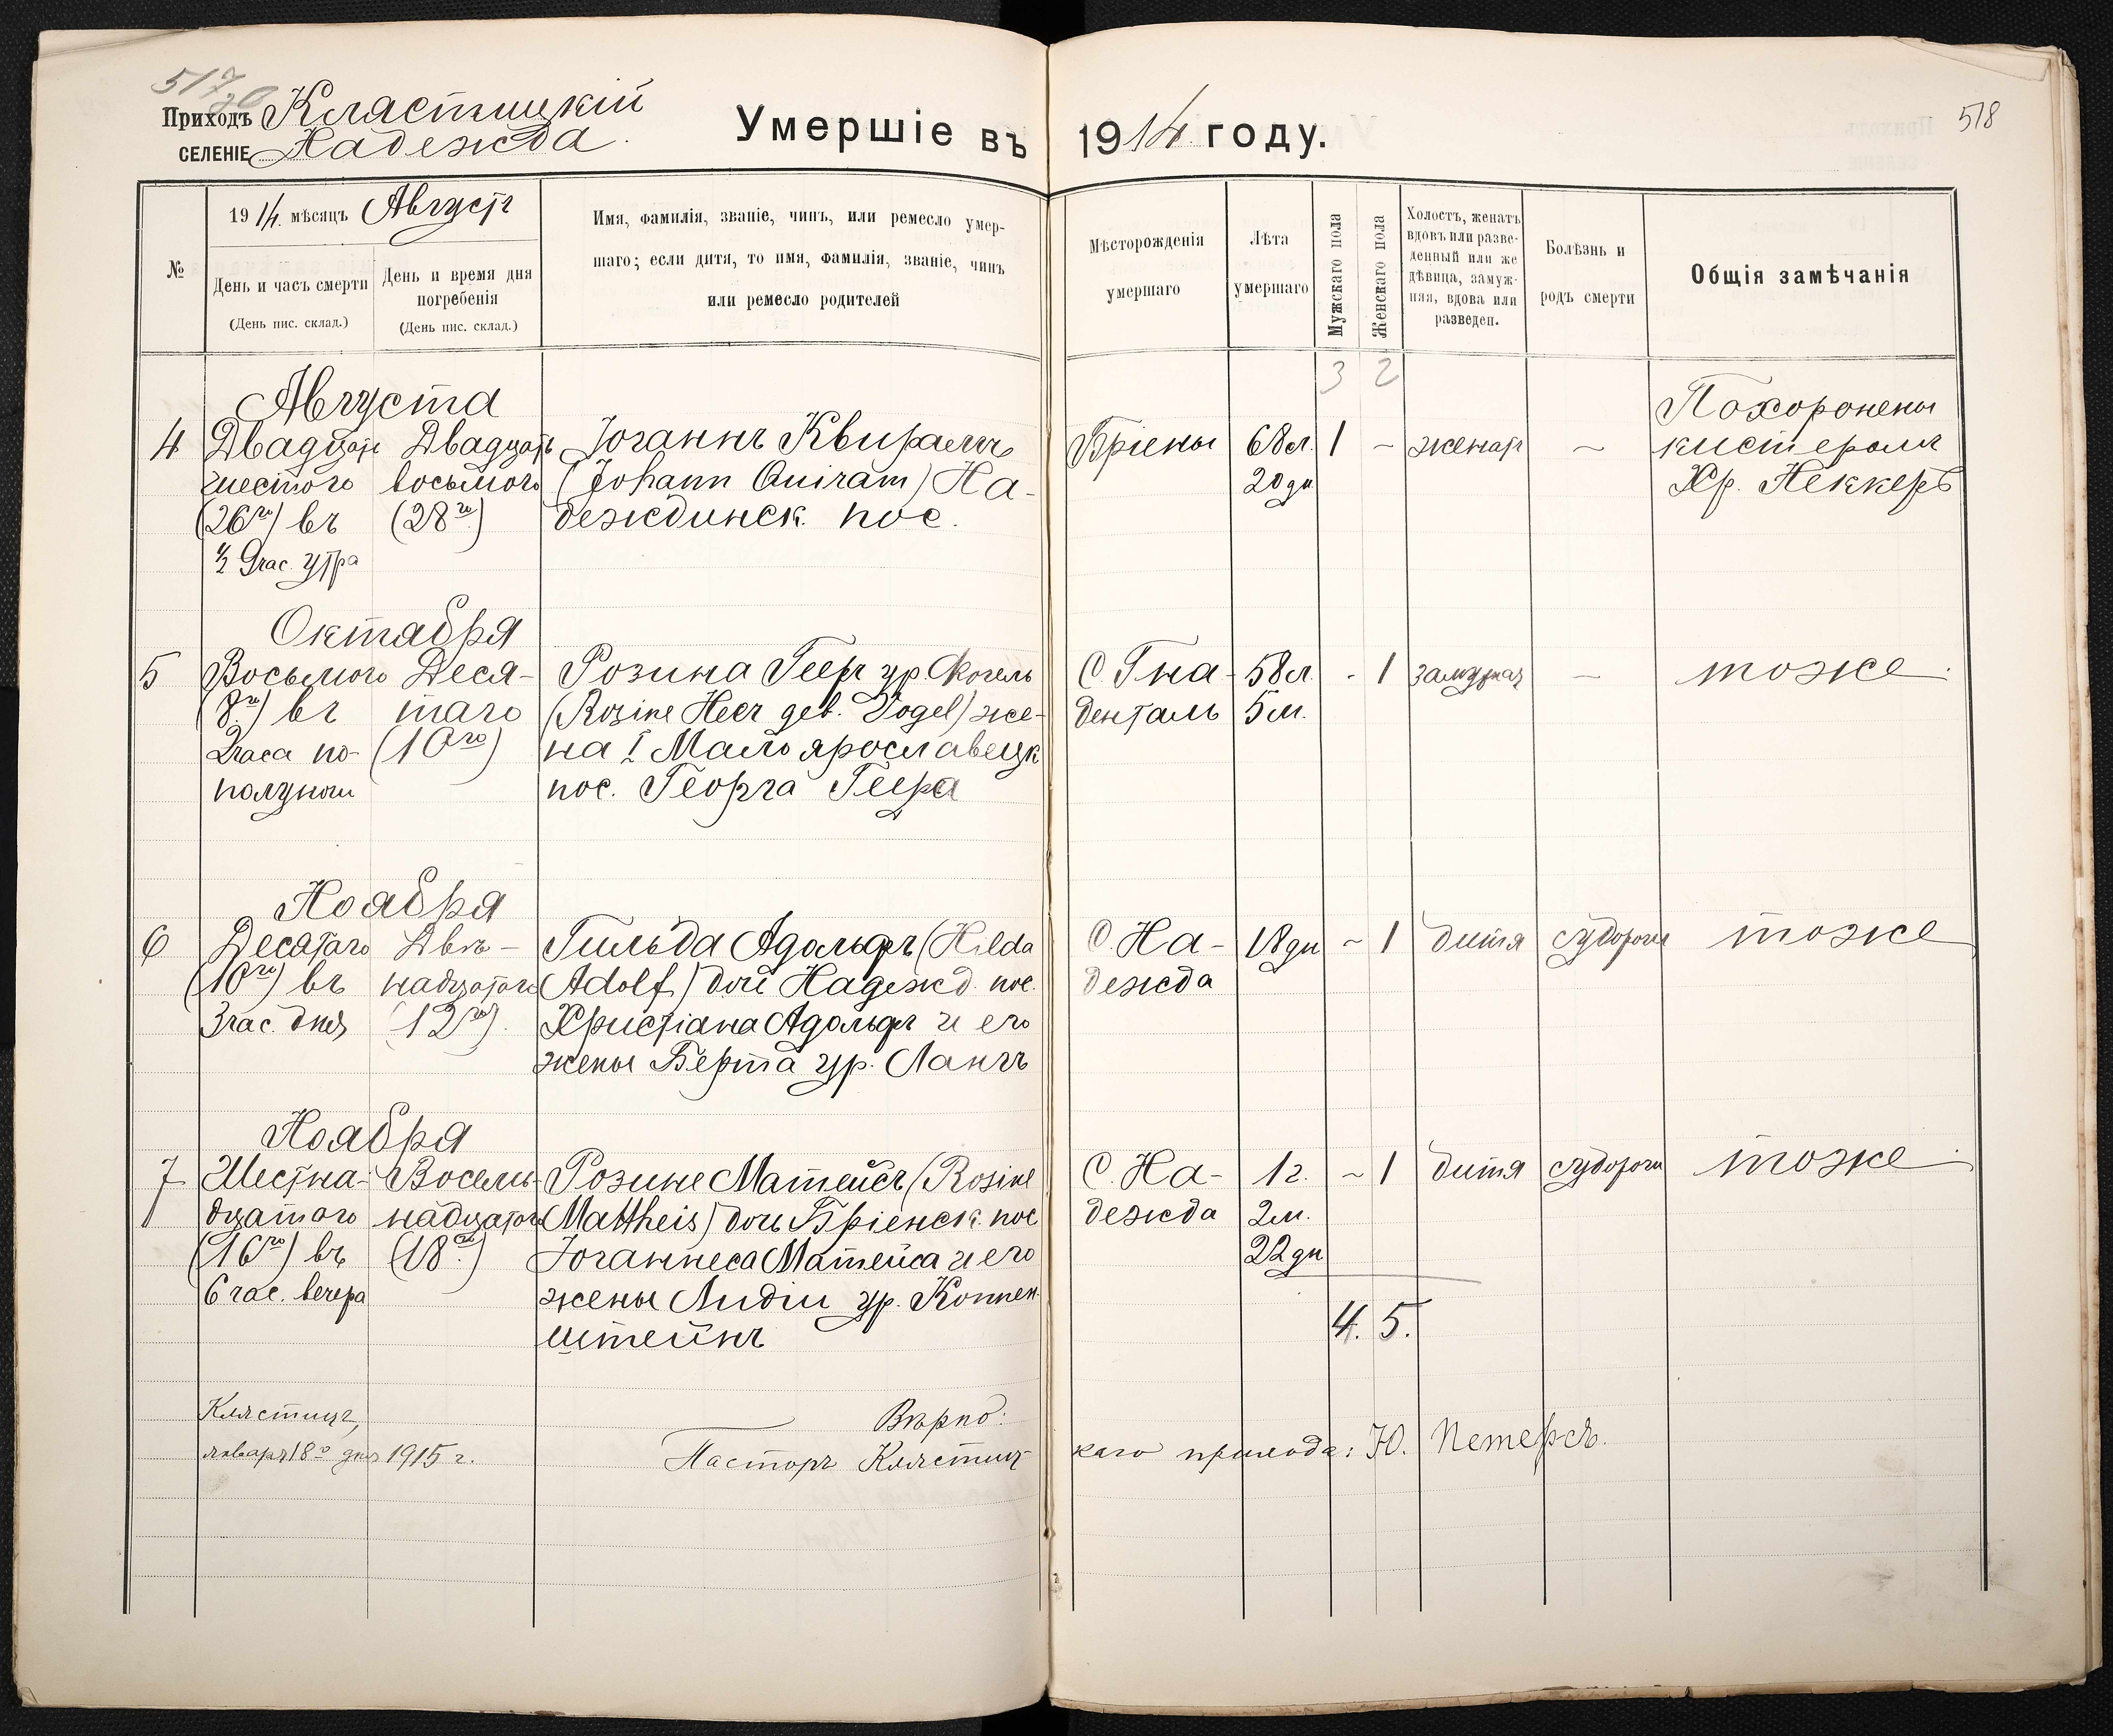 517
518
Приходъ Клястицкій
селеніе Надежда.
Умершіе въ 1914 году.
№
1914 мѣсяцъ Августъ
День и часъ смерти
(День пис. склад.)
День и время дня
погребенія
(День пис. склад.)
Имя, фамилія, званіе, чинъ, или ремесло умер-
шаго; если дитя, то имя, фамилія, званіе, чинъ
или ремесло родителей
Мѣсторожденія
умершаго
Лѣта
умершаго
Мужскаго пола
Женскаго пола
Холостъ, женатъ
вдовъ или разве-
денный или же
дѣвица, замуж-
няя, вдова или
разведен.
Болѣзнь и
родъ смерти
Общія замѣчанія
3 2
Августа
4
Двадцать
шестого
(26го) въ
½ 9 час. утра
Двадцать
восьмого
(28го)
Іоганнъ Квирамъ
(Johann Quiram) На-
деждинск. пос.
Бріены
68 л.
20 дн
1
~
женатъ
~
Похоронены
кистеромъ
Хр. Неккеръ
Октября
5
Восьмого
(8го) въ
2 часа по-
полуночи
Деся-
таго
(10го)
Розина Гееръ ур. Фогель
(Rosine Heer geb. Vogel) же-
на I Малоярославецк
пос. Георга Геера
С. Гна-
денталь
58 л.
5 м.
-
1
замужняя
~
тоже.
Ноября
6
Десятаго
(10го) въ
3 час. дня
Двѣ-
надцатаго
(12го).
Гильда Адольфъ (Hilda
Adolf) доч Надежд. пос.
Христіана Адольфъ и его
жены Берта ур. Лангъ
С. На-
дежда
18 дн
~
1
дитя
судороги
тоже
Ноября
7
Шестна-
дцатого
(16го) въ
6 час. вечера
Восемь-
надцатого
(18го)
Розине Матейсъ (Rosine
Mattheis) доч Бріенск. пос
Іоганнеса Матейса и его
жены Лидіи ур. Коппен-
штейнъ
С. На-
дежда
1 г.
2 м.
22 дн
~
1
дитя
судороги
тоже.
4. 5.
Клястицъ,
января 18го дня 1915 г.
Вѣрно:
Пасторъ Клястиц-
каго прихода: Ю. Петерсъ.